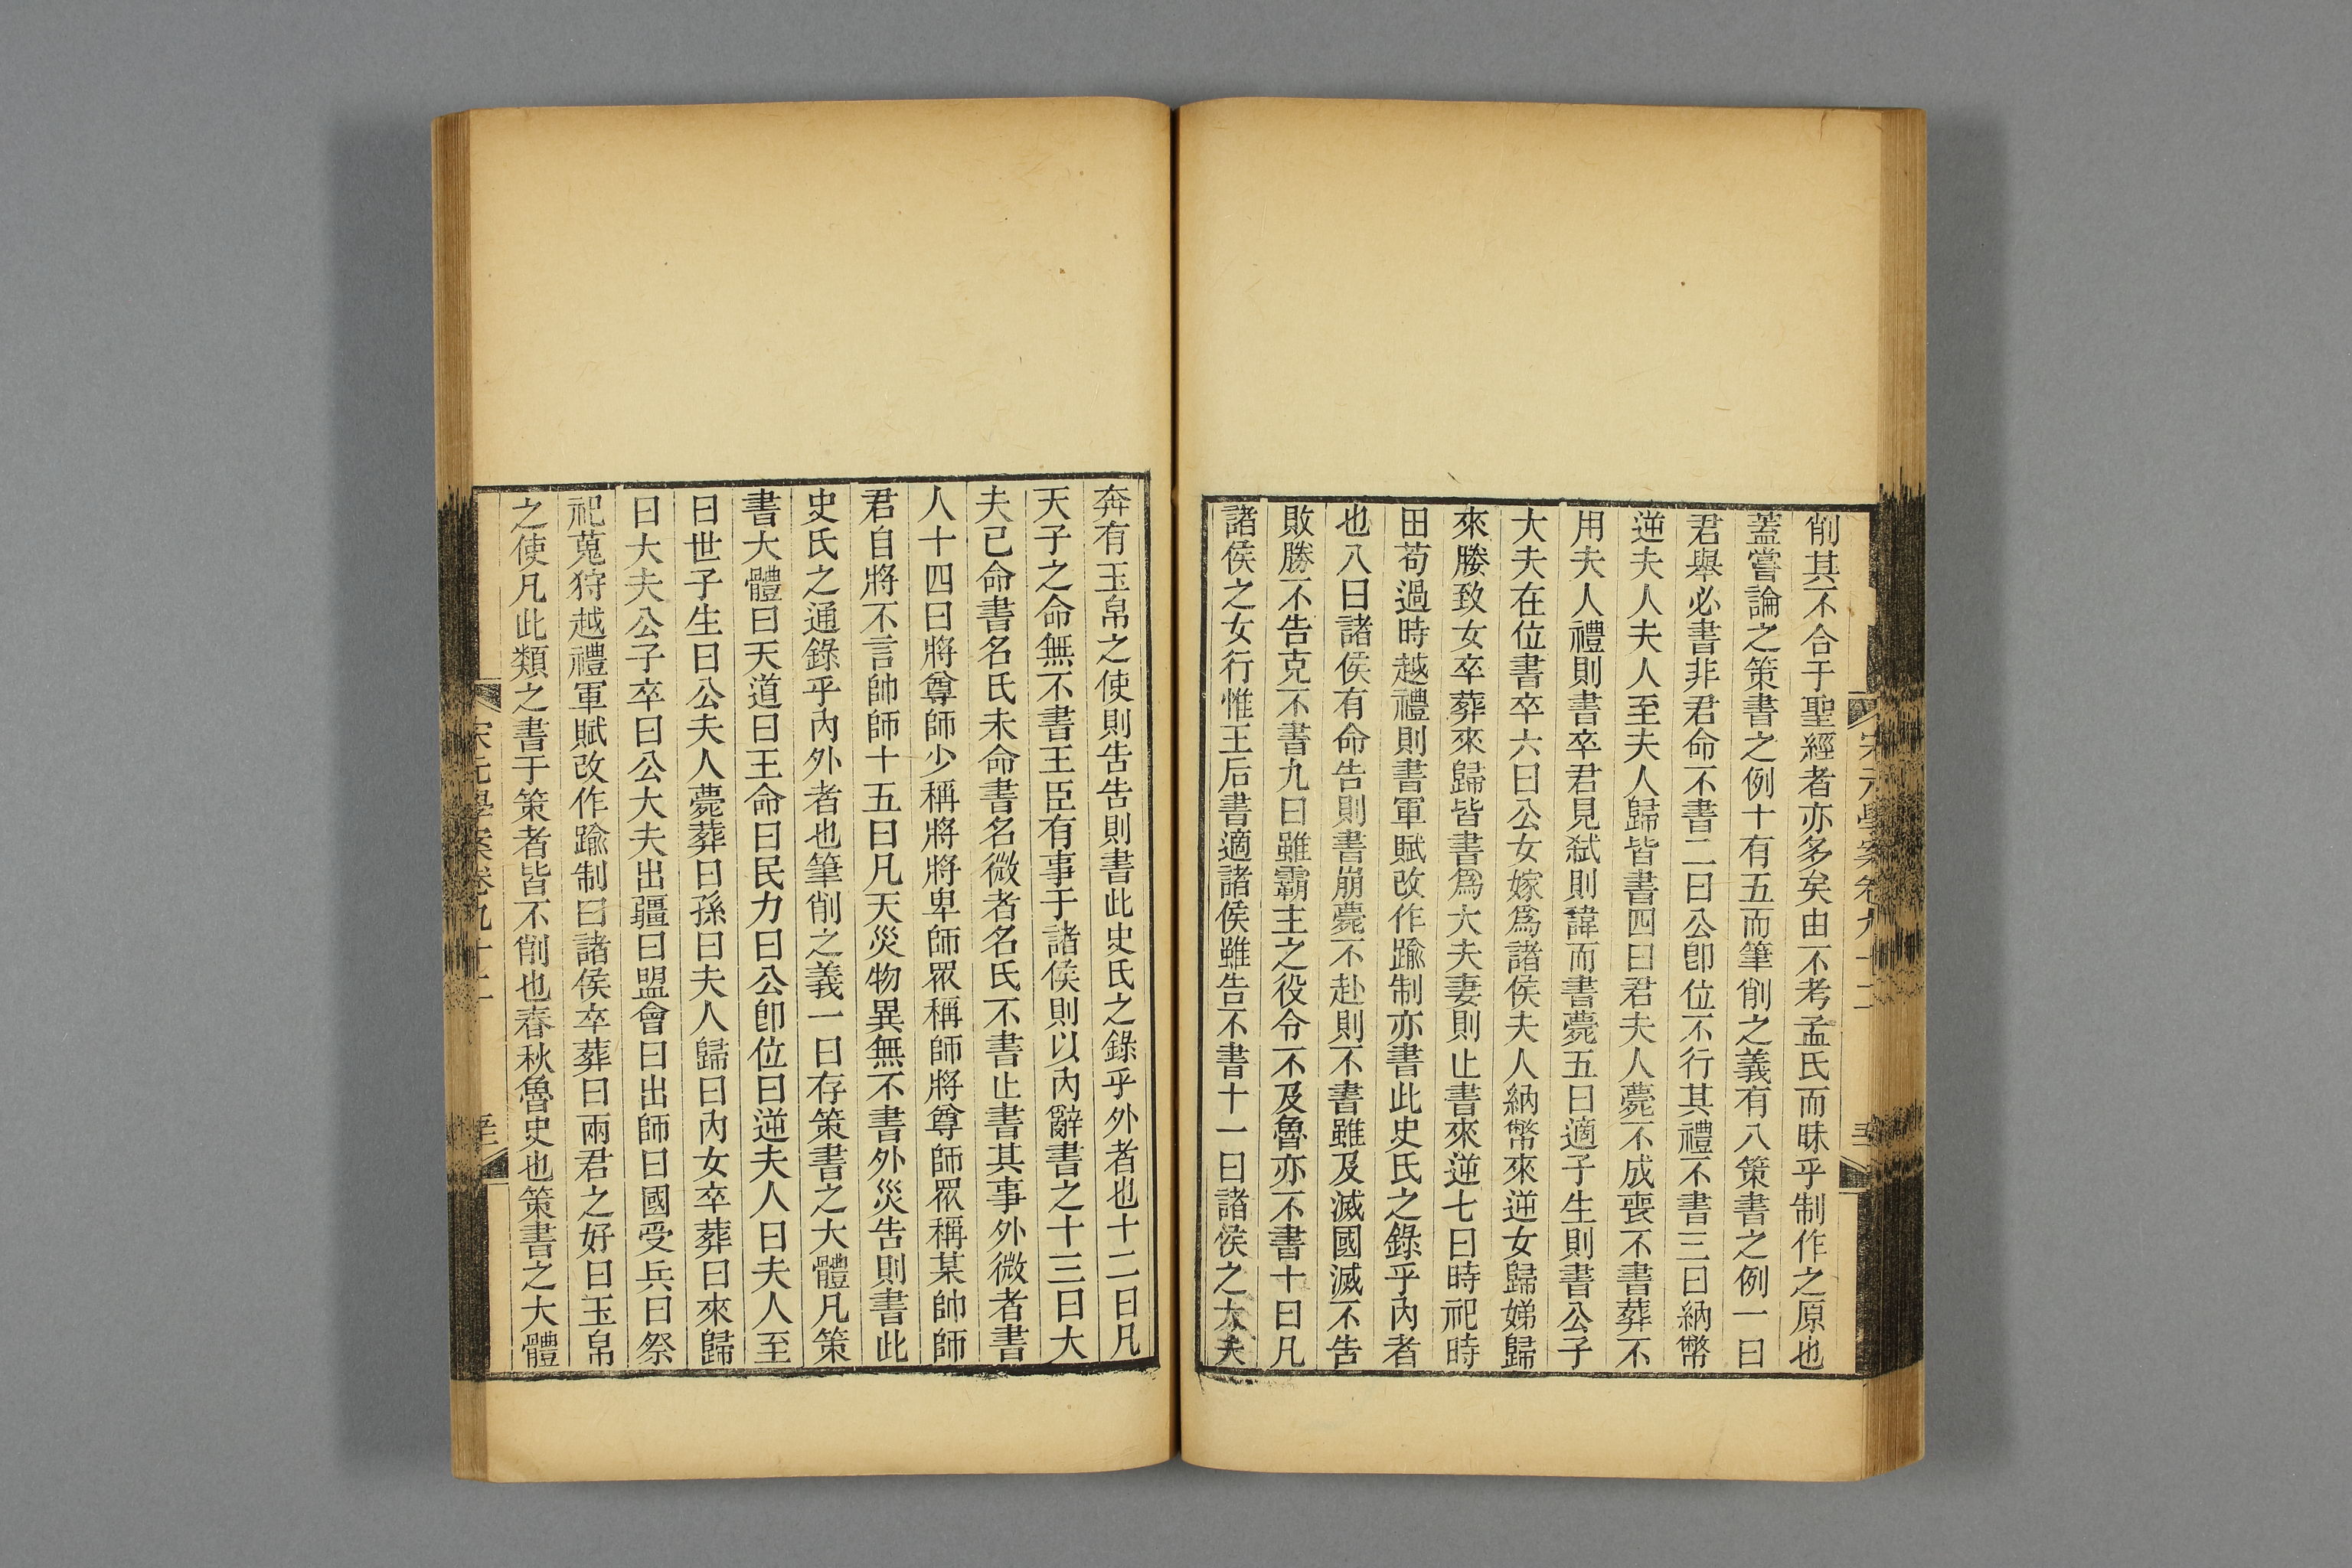 削其不合于聖經者亦多矣由不考孟氏而昧乎制作之原也
蓋嘗論之策書之例十有五而筆削之義有八策書之例一曰
君舉必書非君命不書二曰公卽位不行其禮不書三曰納幣
逆夫人夫人至夫人歸皆書四曰君夫人薨不成喪不書葬不
用夫人禮則書卒君見弑則諱而書薨五曰適子生則書公子
大夫在位書卒六曰公女嫁爲諸侯夫人納幣來逆女歸娣歸
來媵致女卒葬來歸皆書爲大夫妻則止書來逆七曰時祀時
田苟過時越禮則書軍賦改作踰制亦書此史氏之錄乎內者
也八曰諸侯有命告則書崩薨不赴則不書雖及滅國滅不告
敗勝不告克不書九曰雖霸主之役令不及魯亦不書十曰凡
諸侯之女行惟王后書適諸侯雖告不書十一曰諸侯之大夫
奔有玉帛之使則告告則書此史氏之錄乎外者也十二曰凡
天子之命無不書王臣有事于諸侯則以內辭書之十三曰大
夫已命書名氏未命書名微者名氏不書止書其事外微者書
人十四曰將尊師少稱將將卑師眾稱師將尊師眾稱某帥師
君自將不言帥師十五曰凡天災物異無不書外災告則書此
史氏之通錄乎內外者也筆削之義一曰存策書之大體凡策
書大體曰天道曰王命曰民力曰公卽位曰逆夫人曰夫人至
曰世子生曰公夫人薨葬曰孫曰夫人歸曰內女卒葬曰來歸
曰大夫公子卒曰公大夫出疆曰盟會曰出師曰國受兵曰祭
祀蒐狩越禮軍賦改作踰制曰諸侯卒葬曰兩君之好曰玉帛
之使凡此類之書于策者皆不削也春秋魯史也策書之大體
宋元學案卷九十二